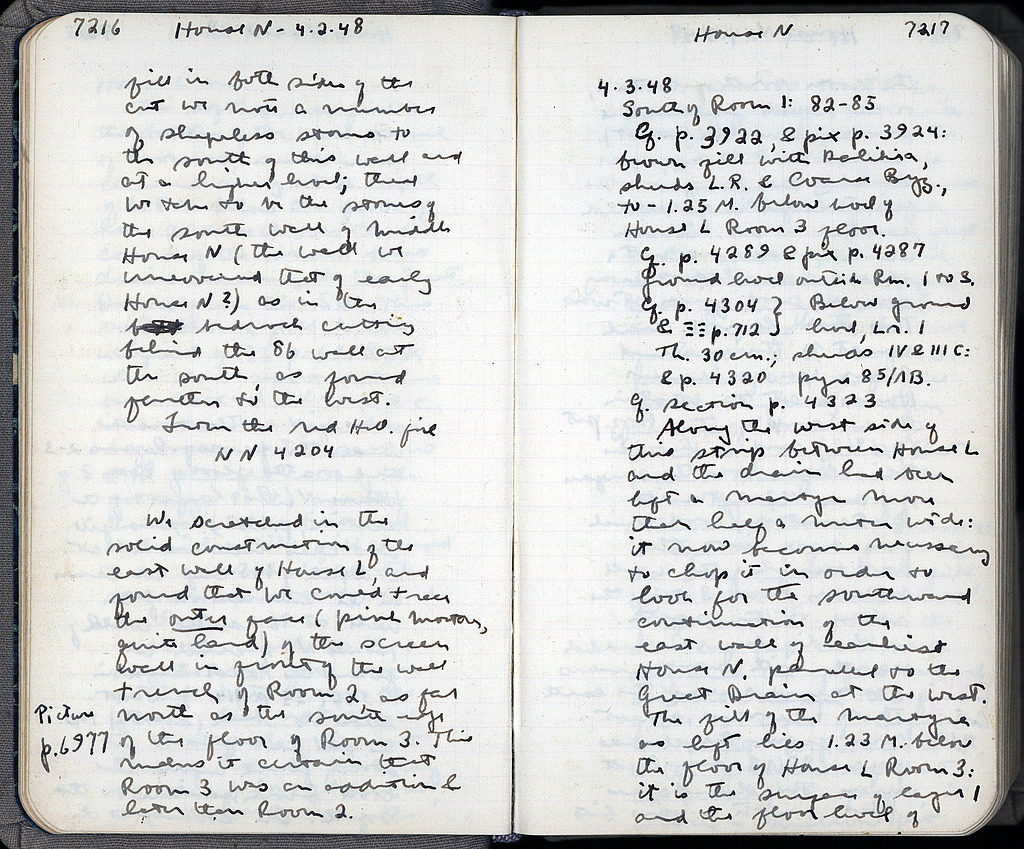 7216 House N - 4.2.48
fill in both sides of the
cut we note a number
of shapeless stones to
the south of this wall and
at a higher level; these
we take to be the stones of
the south wall of Middle
House N (the wall we
uncovered that of early
House N?) as in the
bedrock cutting
behind the 86 wall at
the south, as found
further to the west.
From the red Hill fill
NN 4204
We scratched in the
solid construction of the
east wall of House L, and
found that we could trace
the outer face (pink mortar,
quite hard) of the screen
wall in front of the wall
trench of Room 2, as far
north as the south edge
of the floor of Room 3. This
makes it certain that
Room 3 was an addition &
later than Room 2.
Picture
p. 6977
House N 7217
4.3.48
South of Room 1: 82-83
Cf. p. 3922, & pix p. 3924:
brown fill with
sherds L.R. & Coarse Byz.,
to - 1.25 M. below level of
House L Room 3 floor.
Cf. p. 4289 & pix p. 4287
Ground level outside Rm. 1 to S.
Cf. p. 4304 } Below ground
& p. 712 } level, Lr. 1
Th. 30 cm.; sherds IV & III C:
& p. 4320 pyre 85/ΛB.
Cf. section p. 4323
Along the west side of
this strip between House L
and the drain had been
left a martyr more
than half a meter wide:
it now becomes necessary
to chop it in order to
look for the southward
continuation of the
east wall of earliest
House N, parallel to the
Great Drain at the west.
The fill of the martyra
as left lies 1.23 M. below
the floor of House L Room 3:
it is the surface of layer 1
and the floor level of